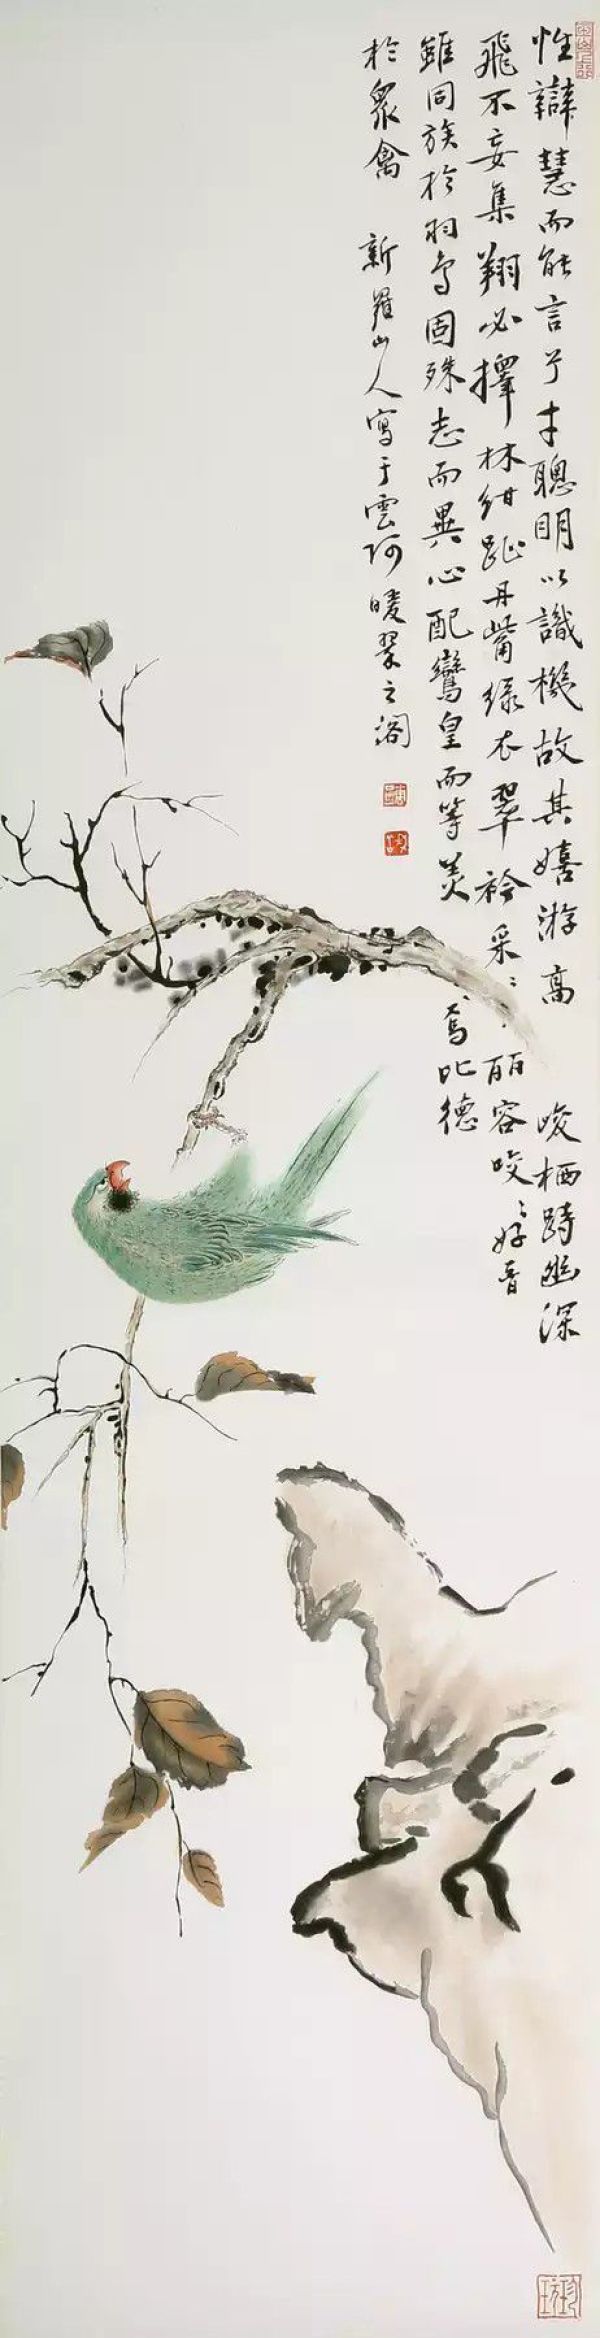 性辯慧而能言兮才聰明以識機故其嬉游高峻栖跱幽深
飛不妄集翔必擇林紺趾丹嘴綠衣翠衿采〻丽容咬〻好音
雖同族於羽毛固殊志而異心配鸞皇而等美焉比德
於衆禽 新羅山人寫于雲阿暖翠之閣